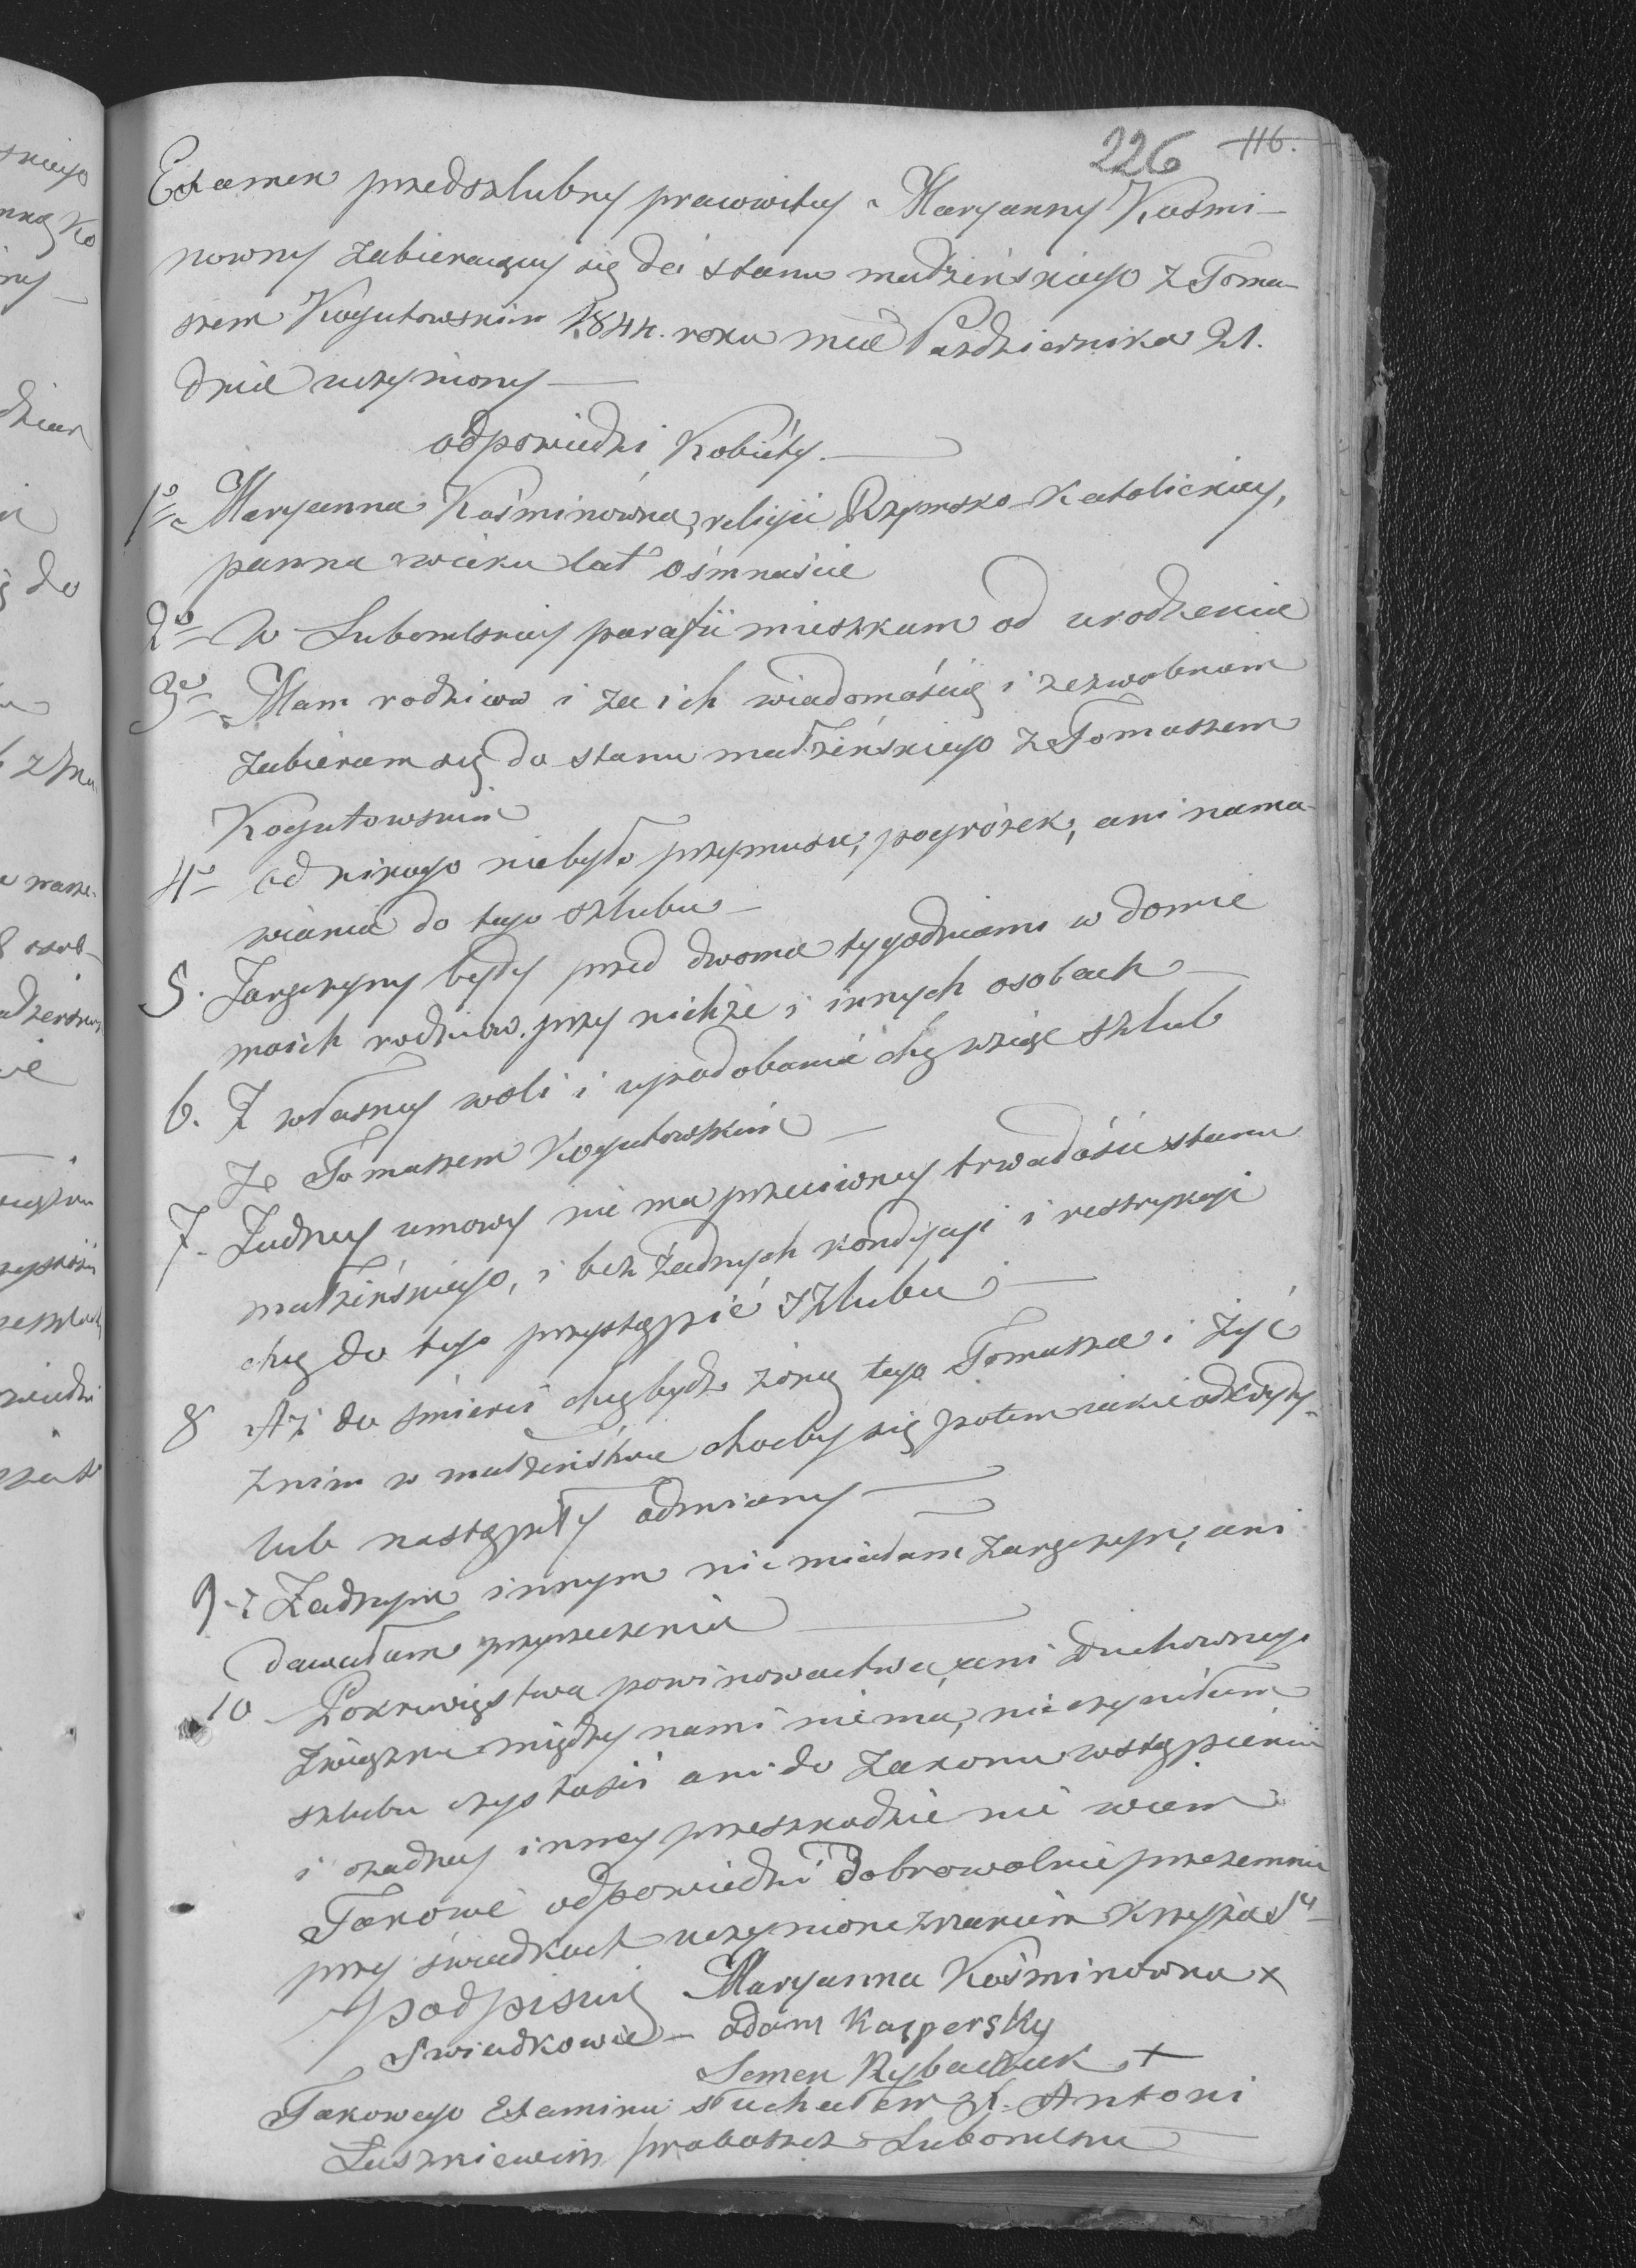 226 116.
Examen przedszlubny pracowitey Maryanny Kośmi-
nowny zabieraiącey się do stanu małżeńskiego z Toma-
szem Kogutowskim 1844. roku mca Października 21.
dnia uczyniony —
odpowiedzi Kobiéty. —
1º Maryanna Kośminówna, religii Rzymsko-Katolickiey,
panna wieku lat ośmnaście
2º W Lubomlskiey parafii mieszkam od urodzenia
3º Mam rodziców i za ich wiadomością i zezwoleniem
zabieram się do stanu małżeńskiego z Tomaszem
Kogutowskim
4º od nikogo niebyło przymusu, pogrózek, ani nama-
wiania do tego szlubu —
5. Zaręczyny były przed dwoma tygodniami w domie
moich rodziców przy nichże i innych osobach —
6. Z własney woli i upodobania chcę wziąć szlub
Ze Tomaszem Kogutowskim —
7. Żadney umowy nie ma przeciwney trwałości stanu
małżeńskiego, i bez żadnych kondycyi i restrykcyi
chcę do tego przystąpić szlubu —
8 Aż do śmierci chcę bydź żoną tego Tomasza i żyć
z nim w małżeństwie choćby się potem iakie odkryły
lub nastąpiły odmiany —
9. z Żadnym innym nie miałam zaręczyn, ani
dawałam przyrzeczenia —
10 Pokrewięstwa powinowactwa, ani Duchownego
związku między nami niema, nie czyniłam
szlubu czystości ani do Zakonu wstąpienia
i żadney inney przeszkodzie nie wiem
Takowe odpowiedzi Dobrowolnie przezemnie
przy świadkach uczynione znakiem Krzyża Sº
podpisuię Maryanna Kośminówna x
Swiadkowie — Adam Kaspersky
Semen Rybaczuk +
Takowego Examinu słuchałem X. Antoni
Luszniewicz proboszcz Lubomlski —